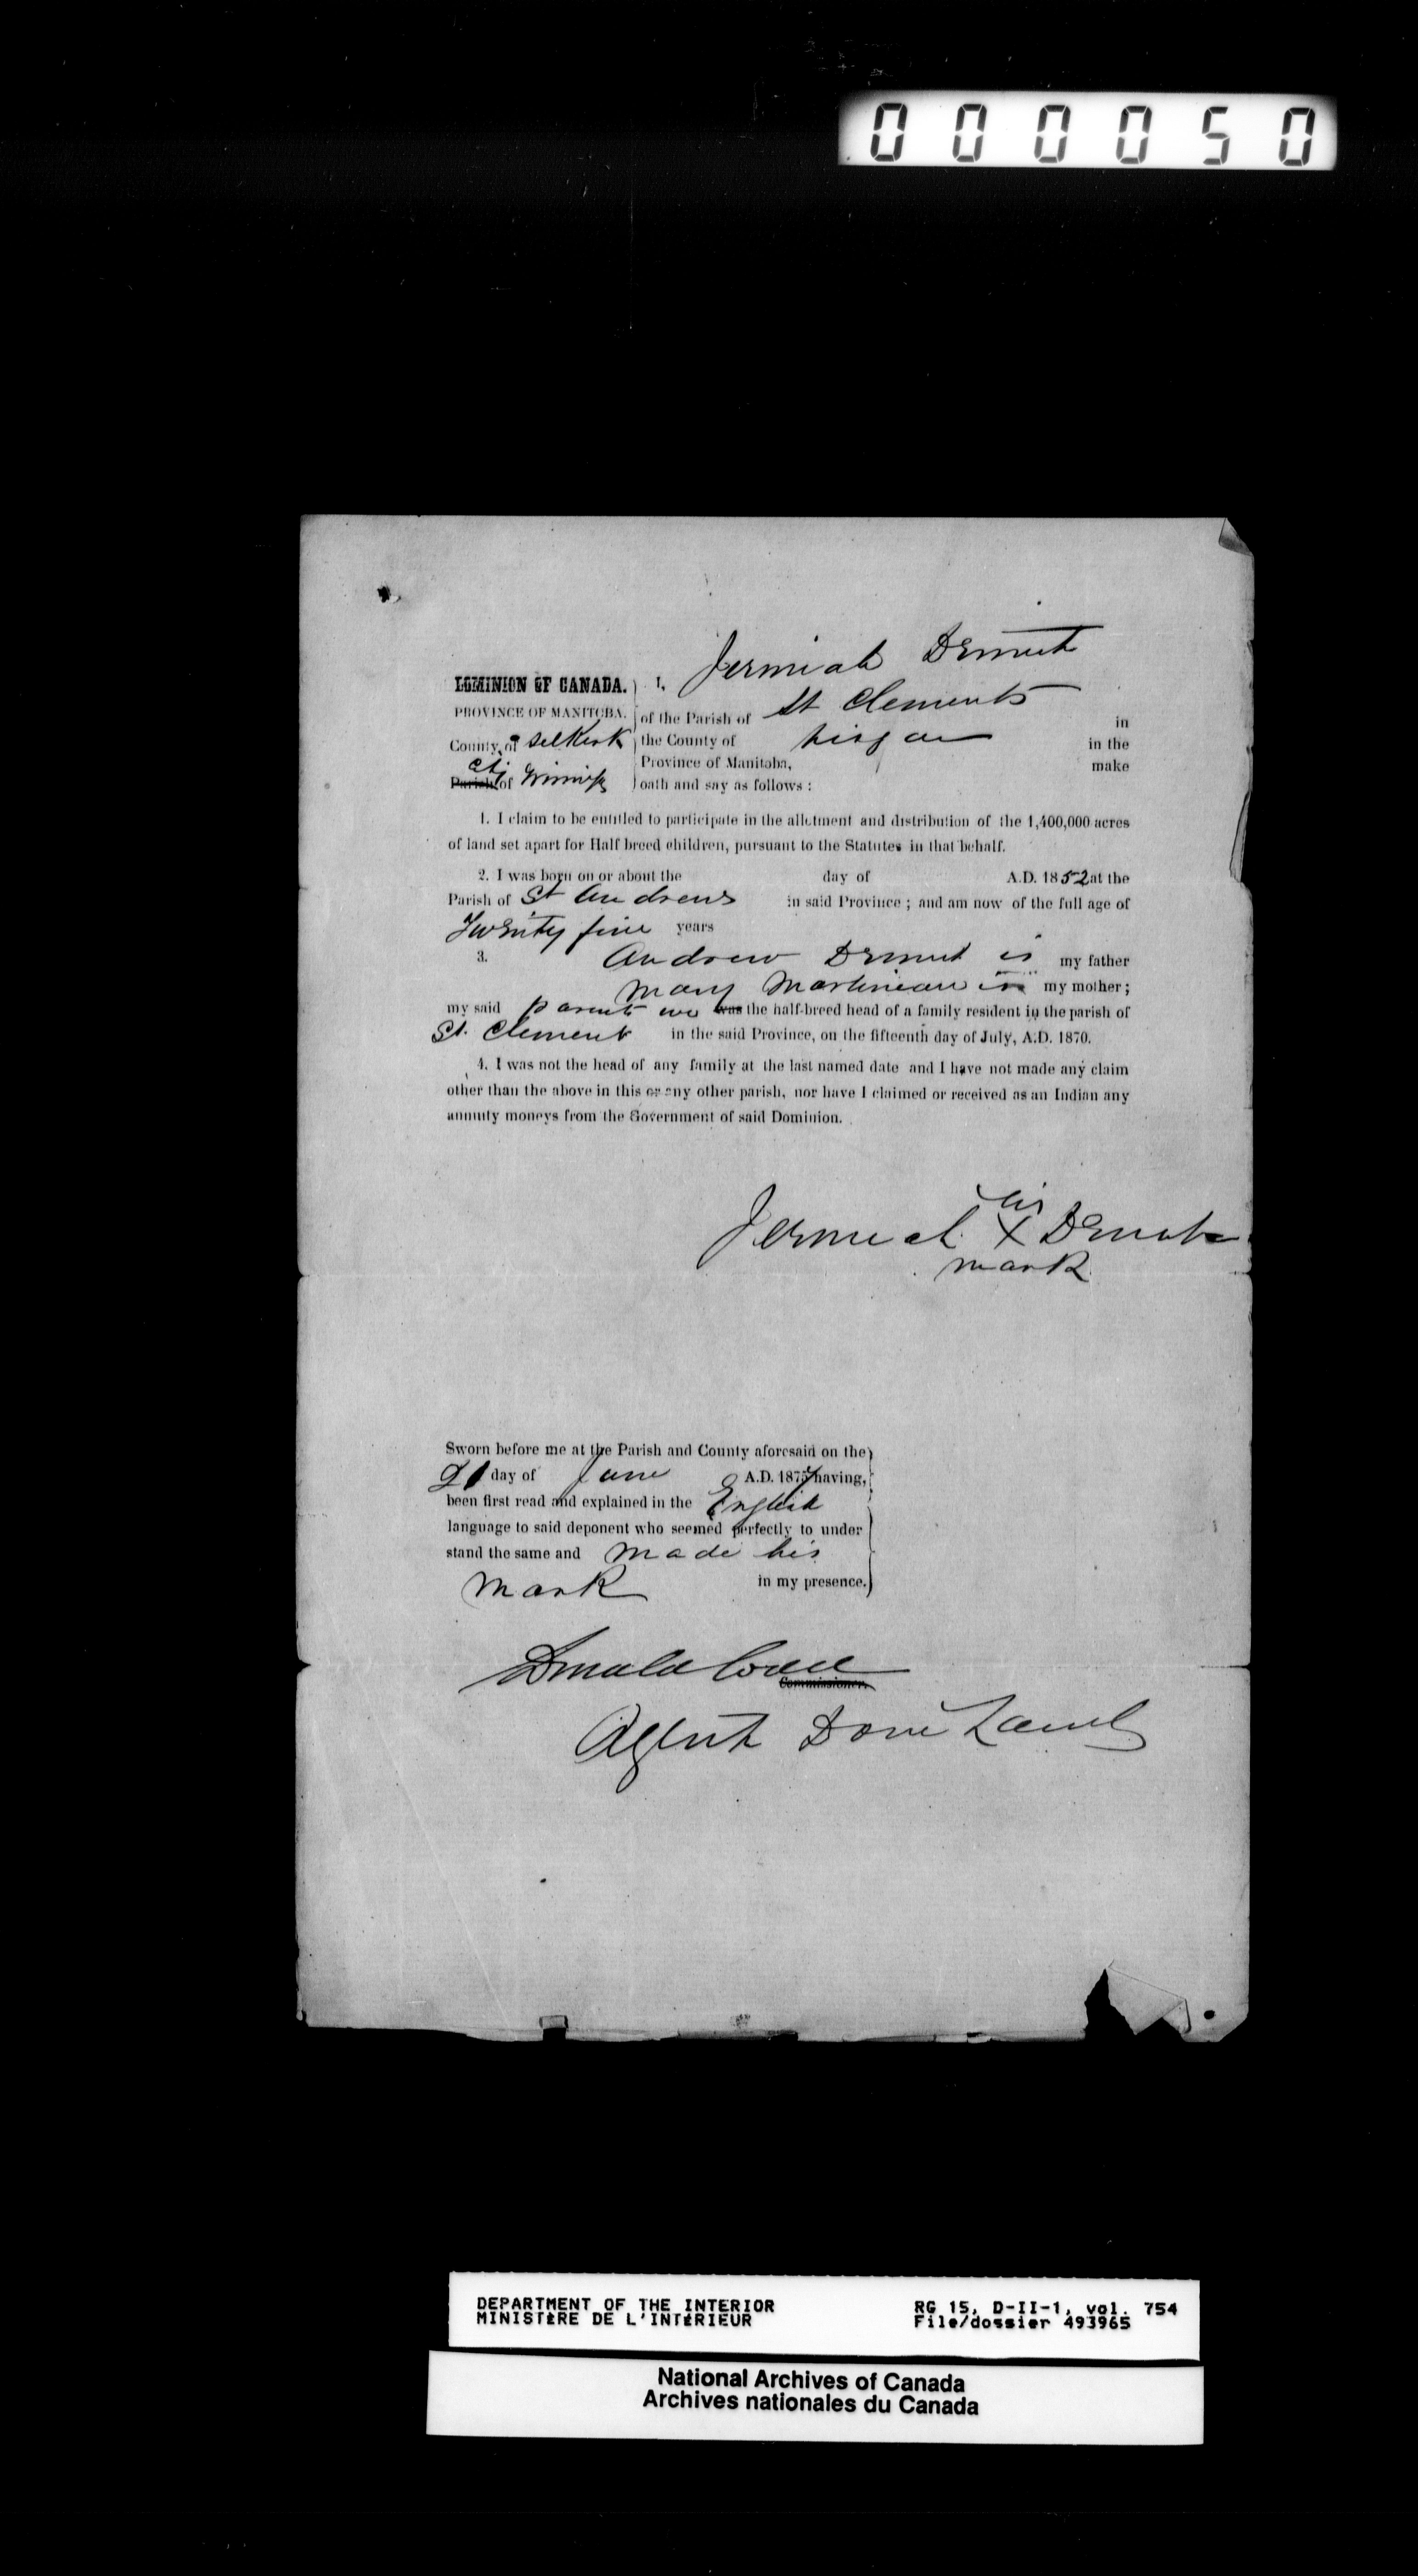 000050
Jermiah Demut
DOMINION OF CANADA. I,
PROVINCE OF MANITOBA. of the Parish of St Clements in
County of Selkirk the County of Lisgar in the
Province of Manitoba, make
City Parish of Winnipeg oath and say as follows :
1. I claim to be entitled to participate in the allotment and distribution of the 1,400,000 acres
of land set apart for Half breed children, pursuant to the Statutes in that behalf.
2. I was born on or about the day of A.D. 1852 at the
Parish of St Andrews in said Province ; and am now of the full age of
Twenty five years
3. Andrew Demut is my father
Mary Martineau is my mother ;
my said parents was the half-breed head of a family resident in the parish of
St. Clement in the said Province, on the fifteenth day of July, A.D. 1870.
4. I was not the head of any family at the last named date and I have not made any claim
other than the above in this or any other parish, nor have I claimed or received as an Indian any
annuity moneys from the Government of said Dominion.
his
Jermiah X Demut
mark
Sworn before me at the Parish and County aforesaid on the
21 day of June A.D. 1877 having,
been first read and explained in the English
language to said deponent who seemed perfectly to under
stand the same and made his
mark in my presence.
Donald Codd
Commissioner.
Agent Dom Lands
DEPARTMENT OF THE INTERIOR RG 15, D-II-1, vol. 754
MINISTÈRE DE L'INTÉRIEUR File/dossier 493965
National Archives of Canada
Archives nationales du Canada